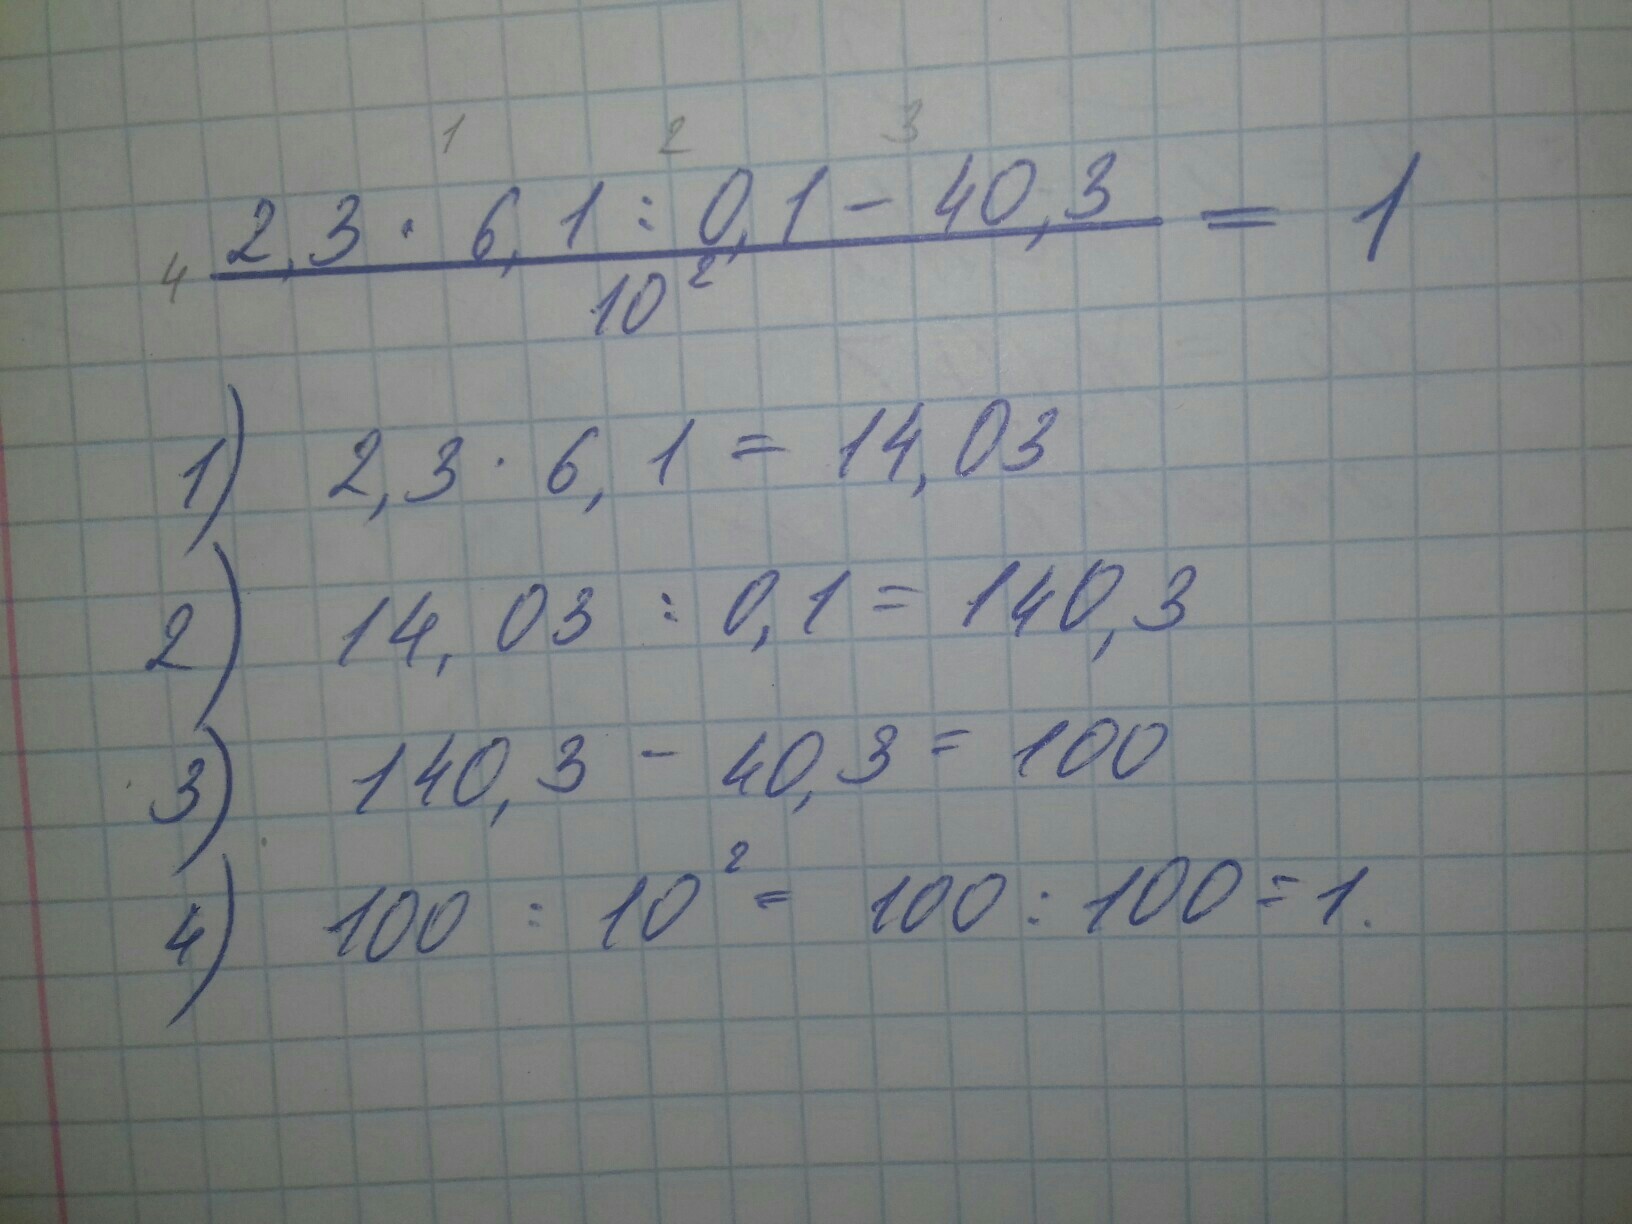 1 2 3
2,3 · 6,1 : 0,1 - 40,3 = 1
4
10²
1) 2,3 · 6,1 = 14,03
2) 14,03 : 0,1 = 140,3
3) 140,3 - 40,3 = 100
4) 100 : 10² = 100 : 100 = 1.